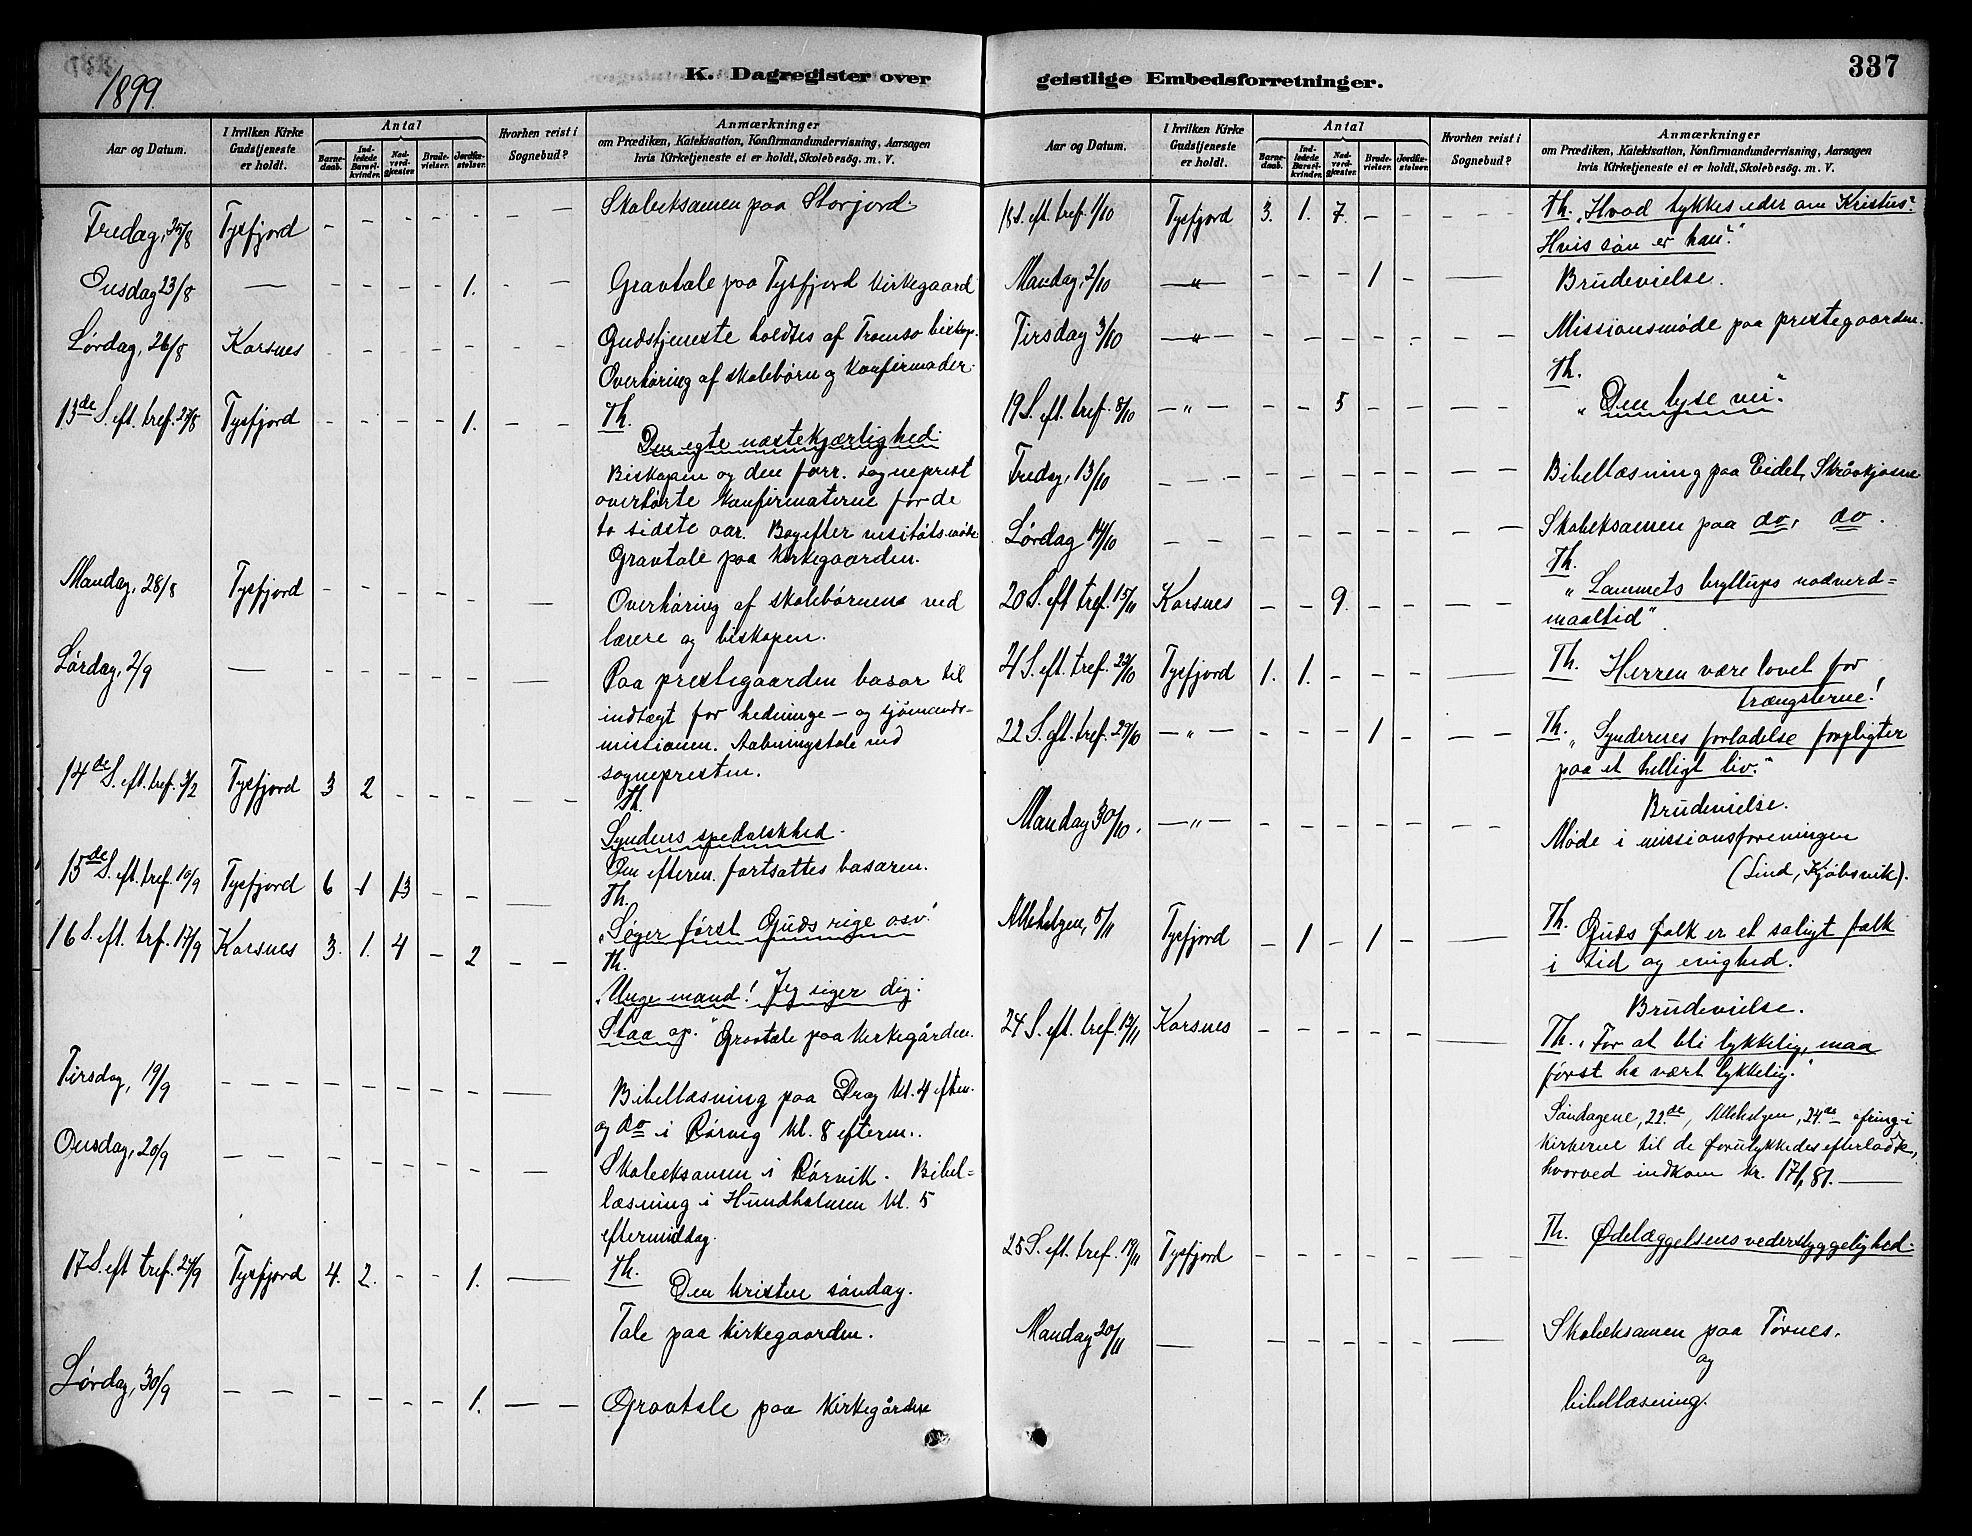 1899.
K. Dagregister over
Aar og Datum.
I hvilken Kirke Gudstjeneste er holdt.
Antal
Barnedaab.
Indledede Barselkvinder.
Nadverdgjester.
Brudevielser.
Jordfæstelser.
Hvorhen reist i Sognebud?
Anmærkninger
om Prædiken, Katekisation, Konfirmandundervisning, Aarsagen
hvis Kirketjeneste ei er holdt, Skolebesög. m. V.
Fredag, /8 Tysfjord - - - - - - - Skoleeksamen paa Storjord.
Onsdag 23/8 — - - - - 1. - - Gravtale paa Tysfjord Kirkegaard
Lørdag, 26/8 Korsnes - - - - - - - Gudstjeneste holdtes af Tromsø biskop.
Overhøring af skolebørn og konfirmader.
13de S. eft. tref. 27/8 Tysfjord - - - - 1. - - Th.
Den egte næstekjærlighed.
Biskopen og den forr. sogneprest
overhørte konfirmaterne for de
to sidste aar. Bagefter visitatsmøte
Gravtale paa Kirkegaarden.
Mandag, 28/8 Tysfjord - - - - - — Overhøring af skolebørnene ved
lærere og biskopen.
Lørdag, 2/9 — - - - - - — Paa prestegaarden basar til
indtægt for hedninge- og sjømands-
missionen. Aabningstale ved
sognepresten.
14de S. eft. tref. 3/2 Tysfjord 3 2 - - - - - Th.
Syndens spedalskhed.
Om efterm. fortsattes basaren.
15de S. eft. tref. 10/9 Tysfjord 6 1 13 - - - - Th.
"Søger først Guds rige osv."
16 S. eft. tref. 17/9 Korsnes 3. 1. 4 - 2 - - Th.
"Unge mand! Jeg siger dig:
Staa op." Gravtale paa Kirkegården.
Tirsdag, 19/9 - - - - - - — Bibellæsning paa Drag kl. 4 efterm.
og do i Rørvig kl. 8 efterm..
Onsdag, 20/9 - - - - - - — Skoleeksamen i Rørvik. Bibel-
læsning i Hundholmen kl. 5
eftermiddag.
17 S. eft tref. 24/9 Tysfjord 4. 2. - - 1. — Th.
Den kristne søndag.
Tale paa Kirkegaarden.
Lørdag, 30/9 - - - - - - 1. — - Gravtale paa Kirkegården
geistlige Embedsforretninger.
337
Aar og Datum.
I hvilken Kirke Gudstjeneste er holdt.
Antal
Barnedaab.
Indledede Barselkvinder.
Nadverdgjester.
Brudevielser.
Jordfæstelser.
Hvorhen reist i Sognebud?
Anmærkninger
om Prædiken, Katekisation, Konfirmandundervisning, Aarsagen
hvis Kirketjeneste ei er holdt, Skolebesög. m. V.
18 S. eft. tref. 1/10 Tysfjord 3. 1. 7. - - - - Th. "Hvad tykkes eder om Kristus?
Hvis søn er han?"
Mandag, 2/10 —"— - - - 1 - — Brudevielse.
Tirsdag 3/10 —"— - - - - - - - Missionsmøde paa prestegaarden.
19 S. eft. tref. 8/10 —"— - - 5 - - - - Th.
"Den lyse vei."
Fredag, 13/10 - - - - - - - - - Bibellæsning paa Eidet, Skrovkjosen
Lørdag 14/10 - - - - - - - - Skoleeksamen paa do, do.
20 S. eft tref. 15/11 Korsnes - - 9. - - - - Th.
"Lammets bryllups nadverd-
maaltid".
21 S. eft tref. 22/10 Tysfjord 1. 1. - - - — Th. Herren være lovet for
trængslerne!
22 S. eft. tref. 29/10 —"— - - - 1 - - - Th. "Syndernes forladelse forpligter
paa et helligt liv."
Brudevielse.
Mandag 30/10. —"— - - - - - - - Møde i missionsforeningen
(Lind, Kjøbsvik).
Allehelgen, 5/11 Tysfjord - 1 - 1 - — Th. Guds folk er et saligt folk
i tid og evighed.
Brudevielse.
24 S. eft. tref. 12/11 Korsnes - - - - - — Th. "For at bli lykkelig, maa
først ha vært lykkelig."
Søndagene, 22de, Allehelgen, 24de ofring i
kirkerne til de forulykkedes efterladte,
hvorved indkom kr. 171,81.—
25 S. eft. tref. 19/11 Tysfjord - - - - - - - Th. Ødelæggelsens vederstyggelighed.
Mandag 20/11 — - - - - - — Skoleeksamen paa Tørnes.
og
bibellæsning.